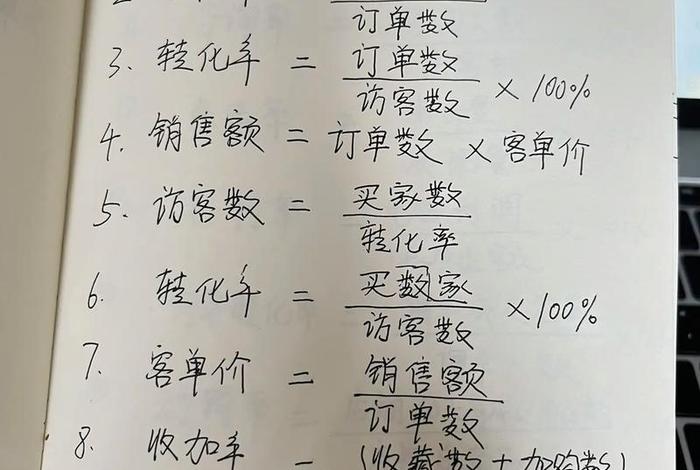 订单数
3. 转化率 = 订单数 / 访客数 × 100%
4. 销售额 = 订单数 × 客单价
5. 访客数 = 买家数 / 转化率
6. 转化率 = 买数家 / 访客数 × 100%
7. 客单价 = 销售额 / 订单数
8. 收加率 = (收藏数 + 加购数)